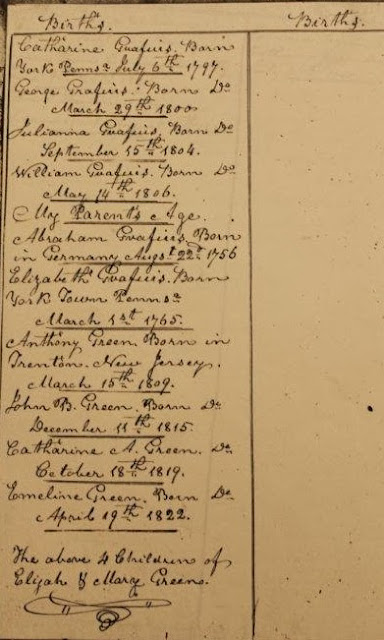 Births.
Births.
Catharine Grafius. Born
York Pennsa July 6th 1797.
George Grafius. Born Do
March 29th 1800
Julianna Grafius, Born Do
September 15th 1804.
William Grafius. Born Do
May 14th 1806.
My Parent's Age.
Abraham Grafius Born
in Germany Augst 22d 1756
Elizabeth Grafius. Born
York Town Pennsa
March 1st 1765.
Anthony Green. Born in
Trenton. New Jersey.
March 15th 1809.
John B. Green. Born Do
December 11th 1815.
Catharine A. Green. Do
October 18th 1819.
Emeline Green. Born Do
April 19th 1822.
The above 4 Children of
Elijah & Mary Green.